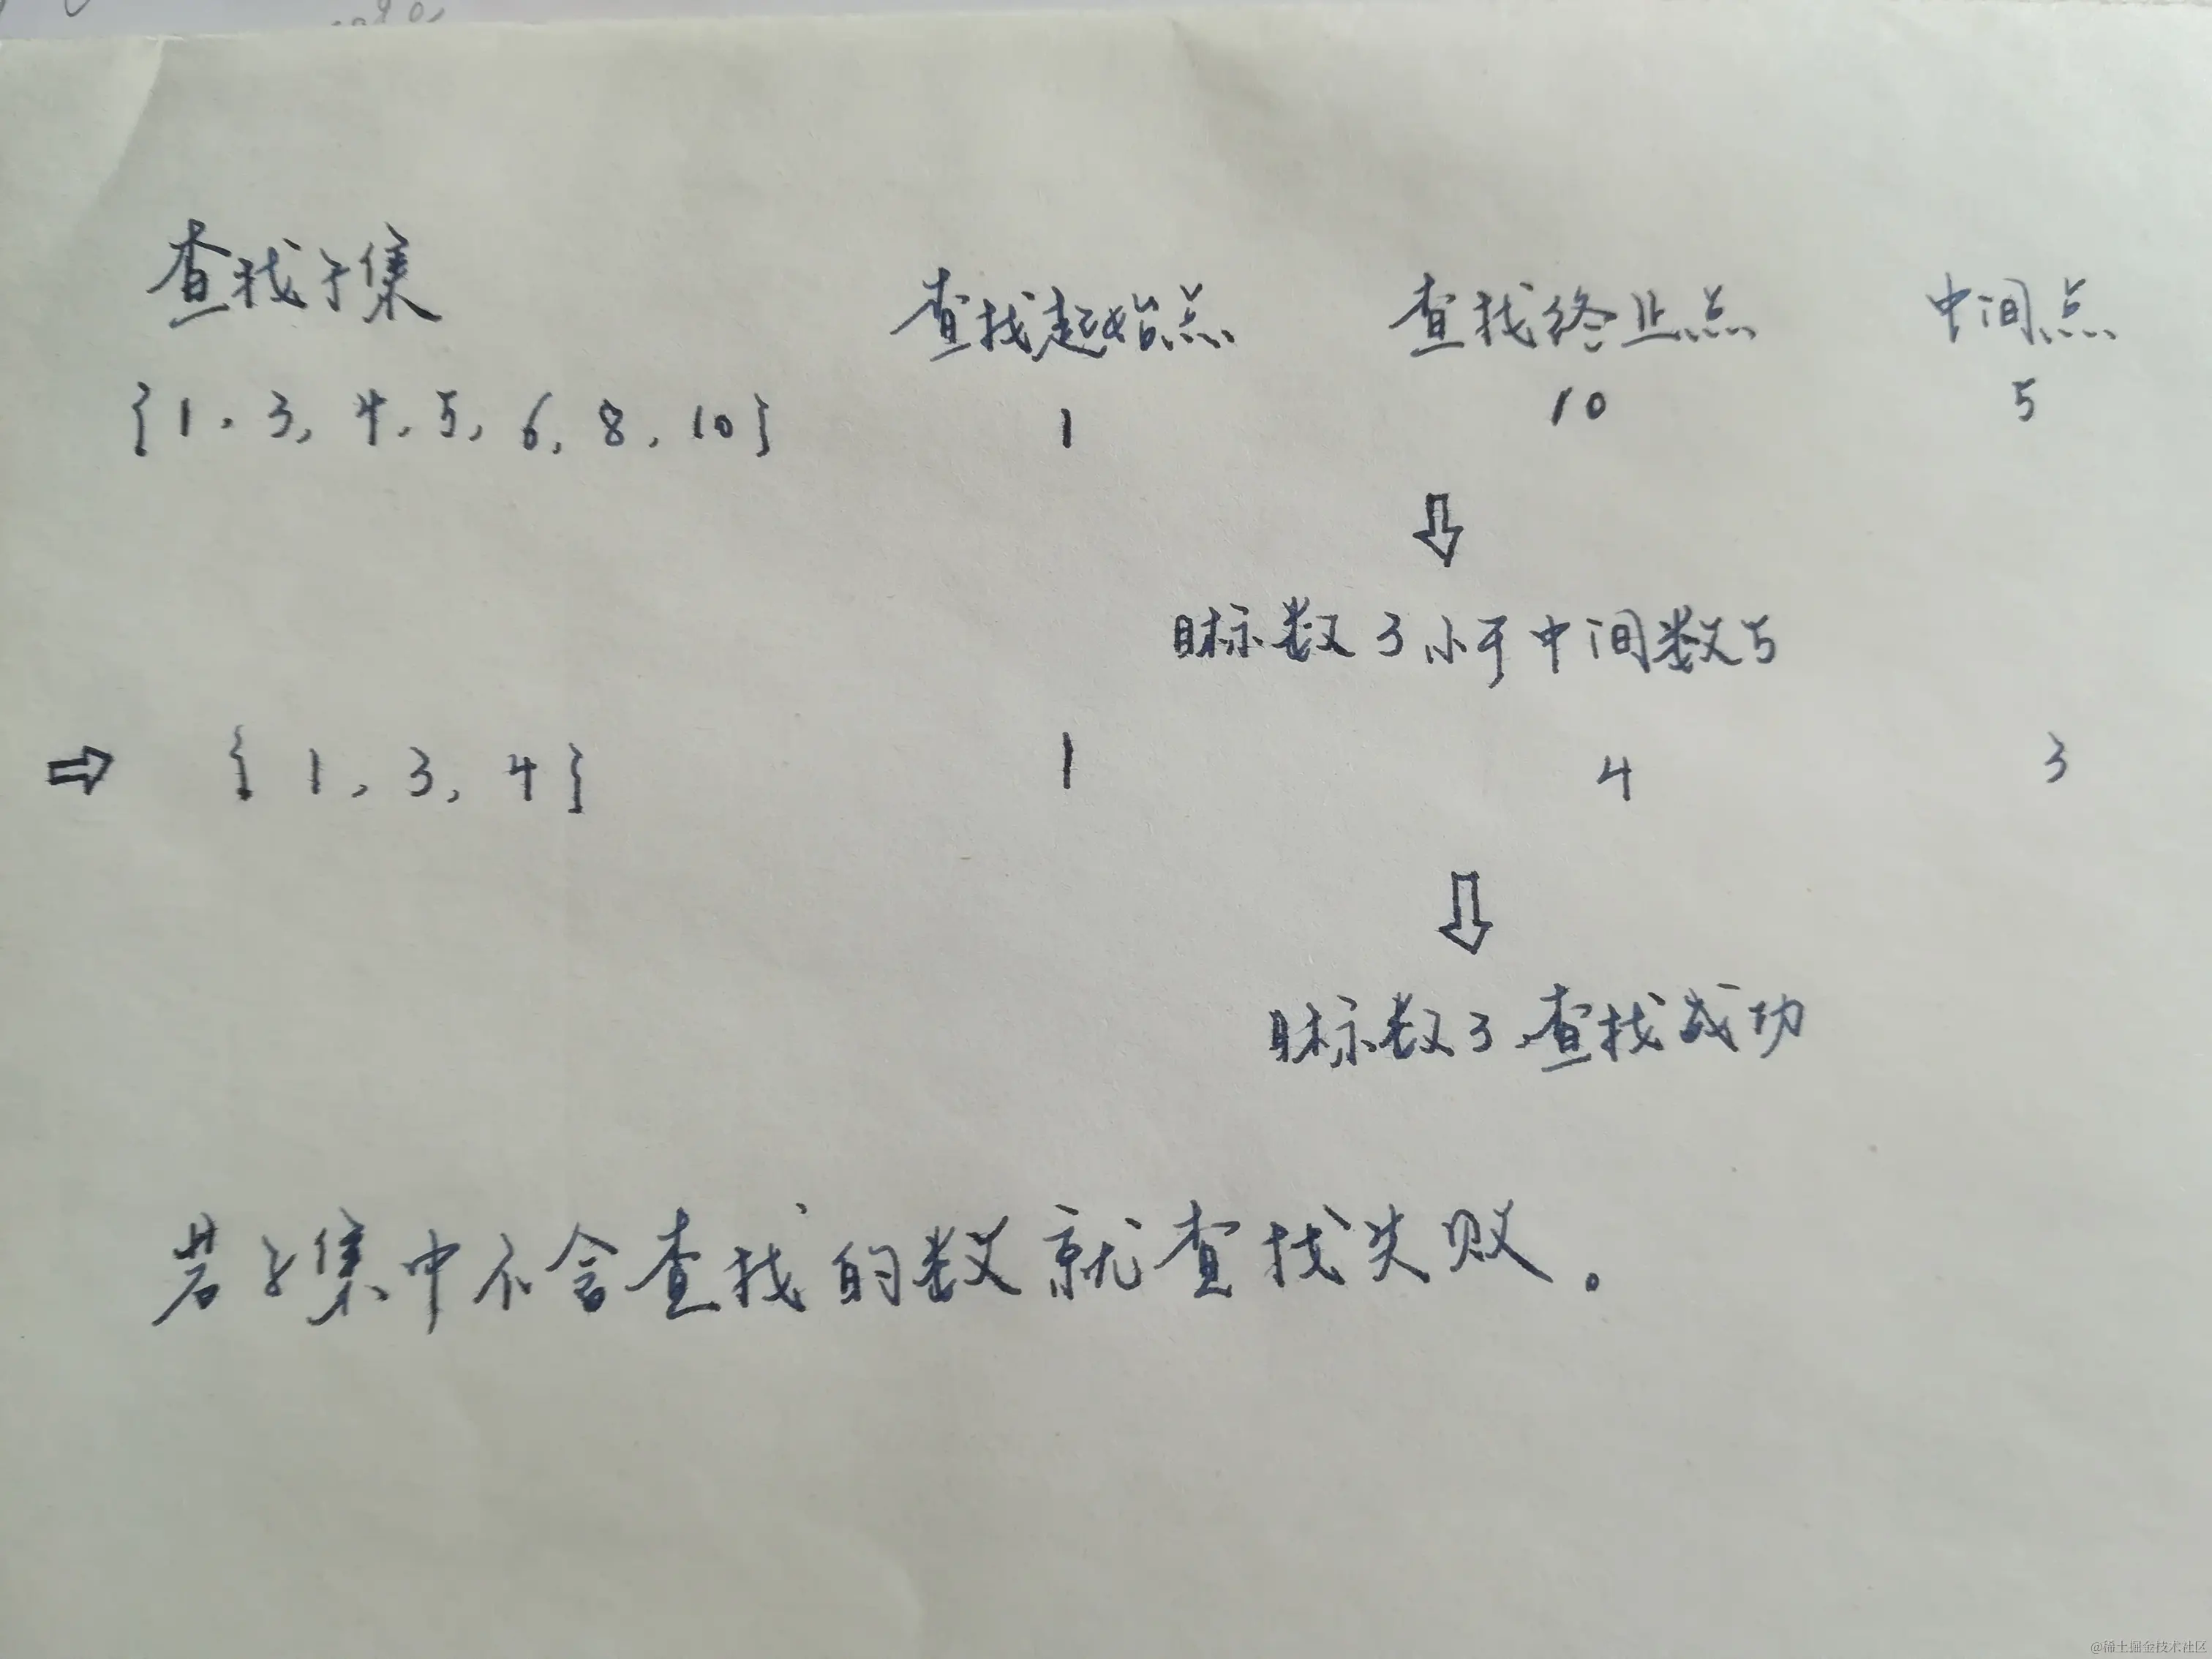 查找子集 查找起始点 查找终止点 中间点
{1, 3, 4, 5, 6, 8, 10} 1 10 5
⇩
目标数3小于中间数5
⇨ {1, 3, 4} 1 4 3
⇩
目标数3查找成功
若子集中不含查找的数就查找失败。
@稀土掘金技术社区